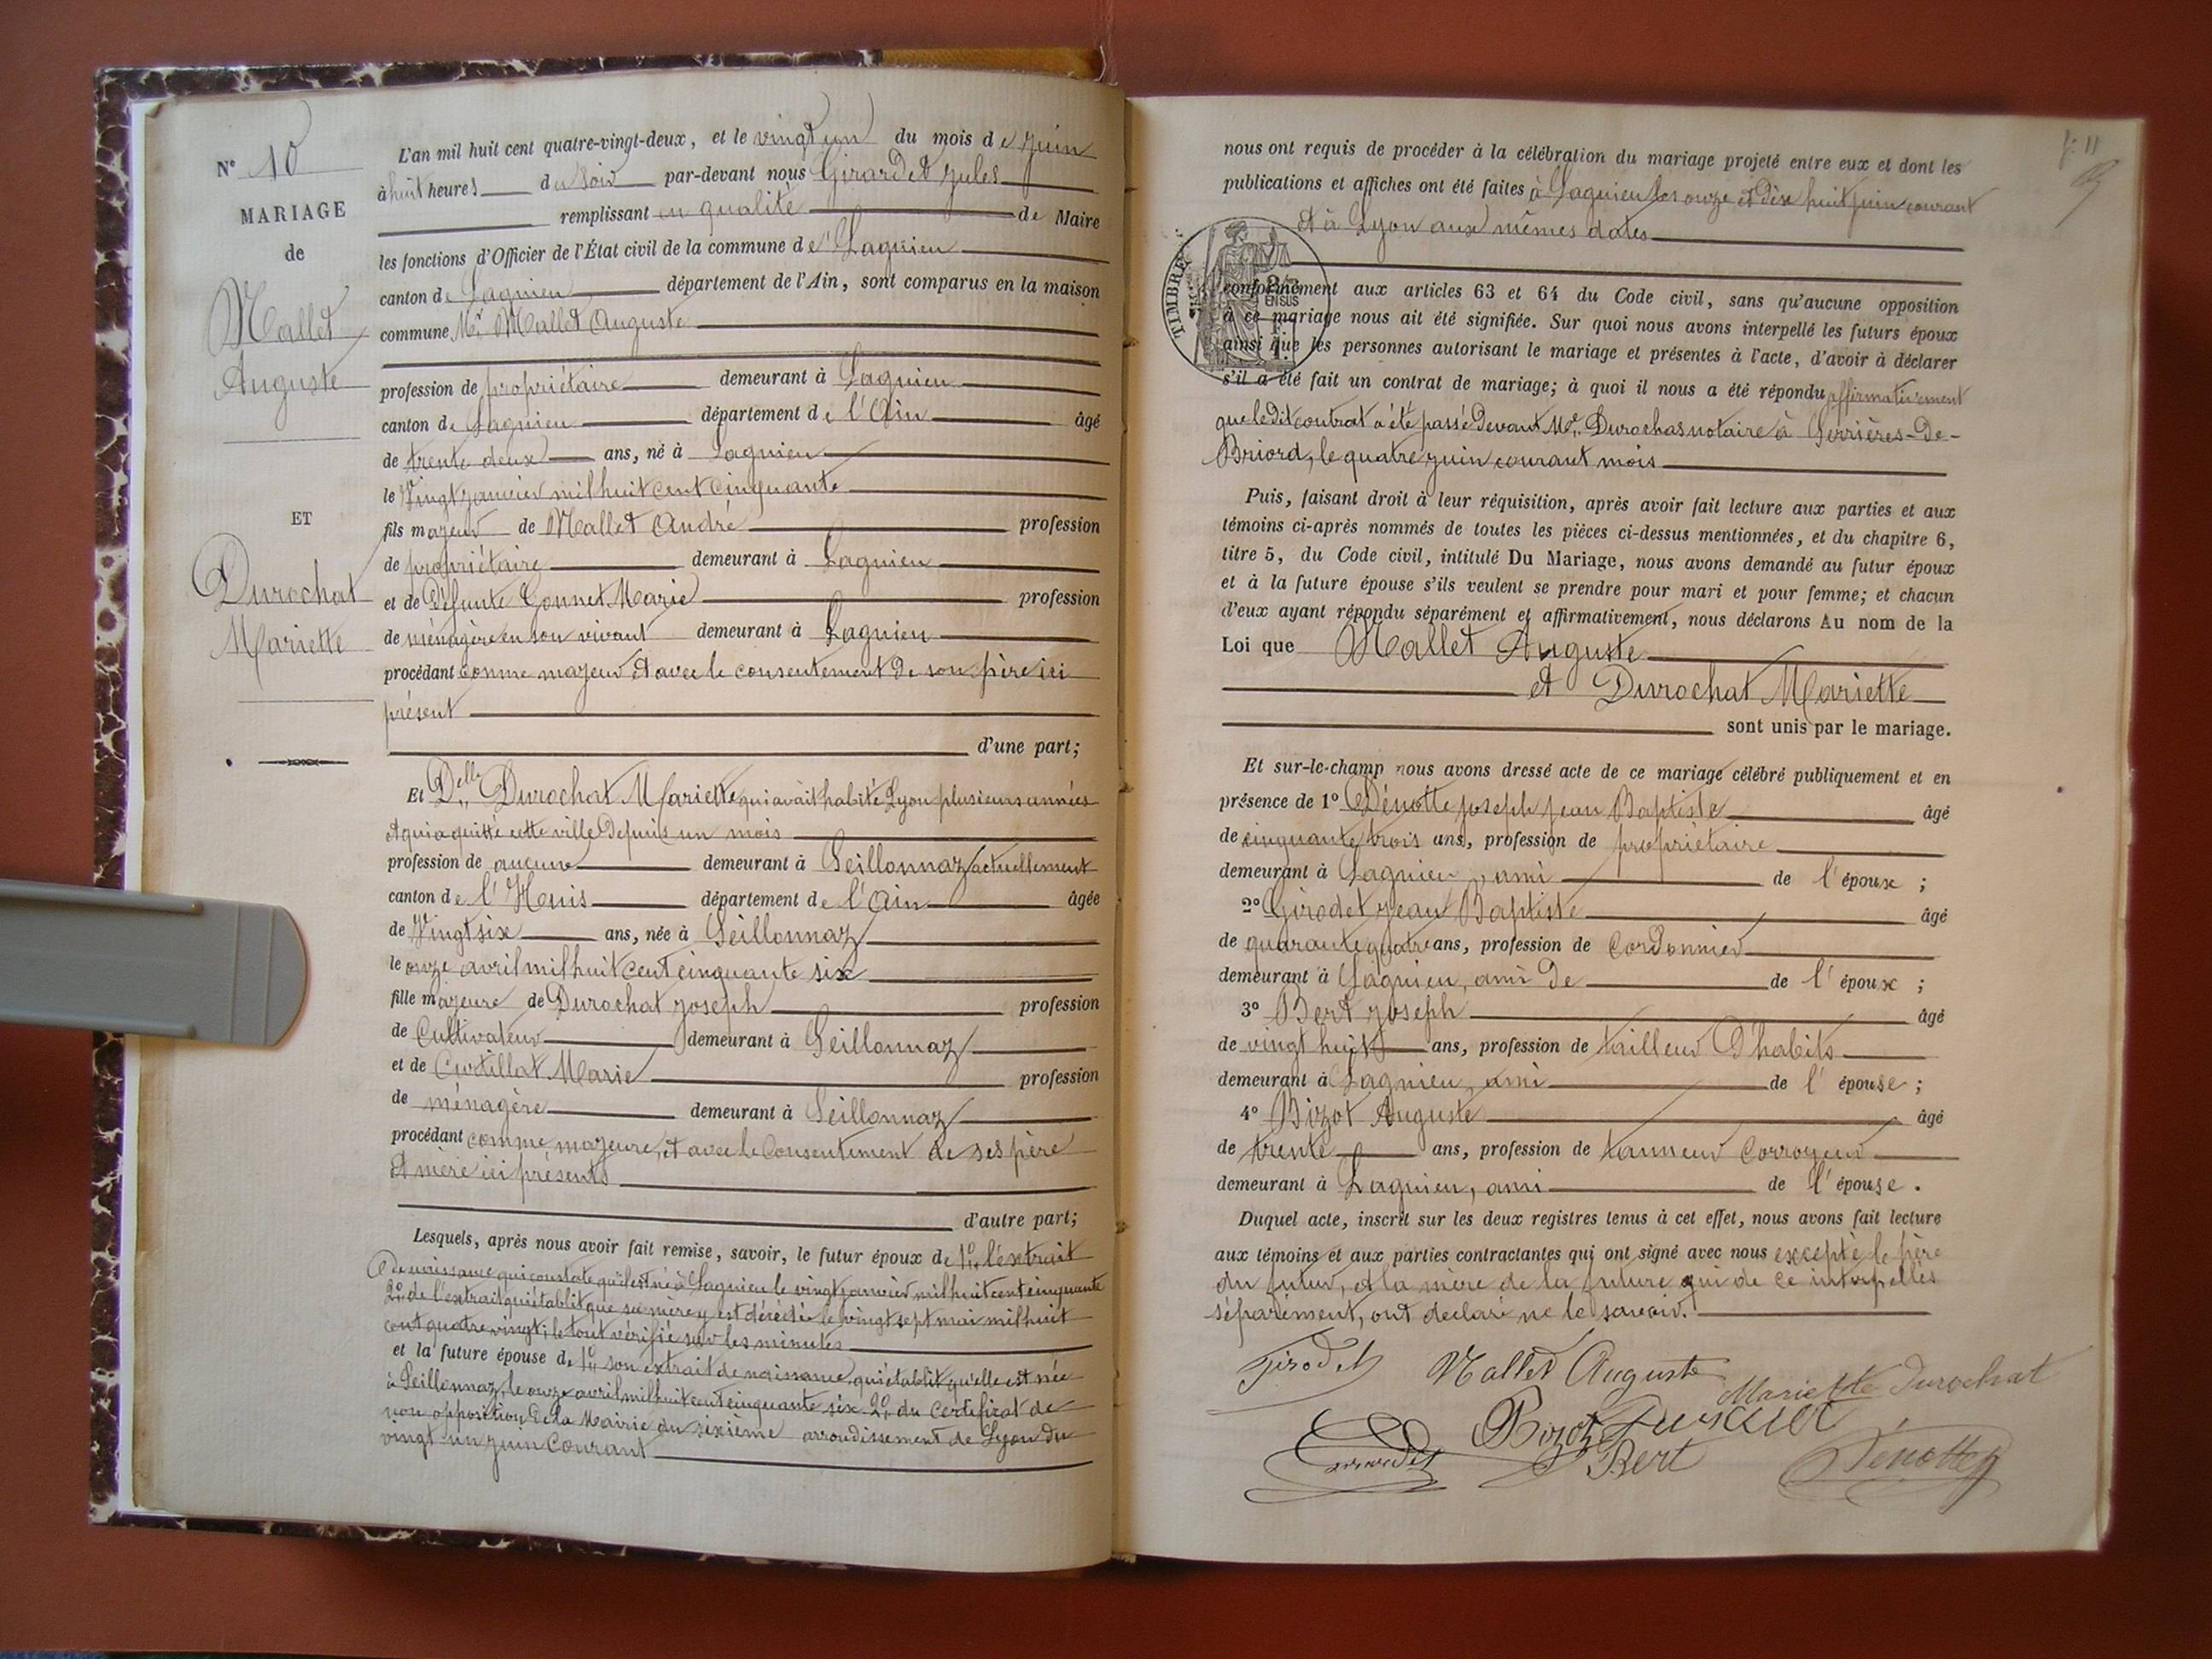 N° 10
MARIAGE
de
Mallet
Auguste
ET
Durochat
Mariette
L'an mil huit cent quatre-vingt-deux, et le vingt un du mois de juin
à huit heures du soir par-devant nous Girardet Jules
remplissant en qualité de Maire
les fonctions d'Officier de l'État civil de la commune de Lagnieu
canton de Lagnieu département de l'Ain, sont comparus en la maison
commune Mr Mallet Auguste
profession de propriétaire demeurant à Lagnieu
canton de Lagnieu département de l'Ain âgé
de trente deux ans, né à Lagnieu
le Vingt janvier mil huit cent cinquante
fils majeur de Mallet André profession
de propriétaire demeurant à Lagnieu
et de Défunte Gonnet Marie profession
de ménagère en son vivant demeurant à Lagnieu
procédant comme majeur et avec le consentement de son père ici
présent
d'une part;
Et Delle Durochat Mariette, qui avait habité Lyon plusieurs années
et qui a quitté cette ville depuis un mois
profession de aucune demeurant à Seillonnaz actuellement
canton de l'Huis département de l'Ain âgée
de Vingt six ans, née à Seillonnaz
le onze avril mil huit cent cinquante six
fille majeure de Durochat Joseph profession
de Cultivateur demeurant à Seillonnaz
et de Curtillat Marie profession
de ménagère demeurant à Seillonnaz
procédant comme majeure, et avec le Consentement de ses père
et mère ici présents
d'autre part;
Lesquels, après nous avoir fait remise, savoir, le futur époux de 1° l'extrait
de naissance qui constate qu'il est né à Lagnieu le vingt janvier mil huit cent cinquante
2° de l'extrait qui établit que sa mère y est décédée le vingt sept mai mil huit
cent quatre vingt; le tout vérifié sur les minutes
et la future épouse de 1° son extrait de naissance qui établit qu'elle est née
à Seillonnaz, le onze avril mil huit cent cinquante six 2° du certificat de
non opposition de la Mairie du sixième arrondissement de Lyon du
vingt-un juin Courant
f. 11
nous ont requis de procéder à la célébration du mariage projeté entre eux et dont les
publications et affiches ont été faites à Lagnieu les onze et dix huit juin courant
et à Lyon aux mêmes dates
TIMBRE
EN SUS
conformément aux articles 63 et 64 du Code civil, sans qu'aucune opposition
à ce mariage nous ait été signifiée. Sur quoi nous avons interpellé les futurs époux
ainsi que les personnes autorisant le mariage et présentes à l'acte, d'avoir à déclarer
s'il a été fait un contrat de mariage; à quoi il nous a été répondu affirmativement
que ledit contrat a été passé devant Me Durochas notaire à Serrières-de-
Briord, le quatre juin courant mois
Puis, faisant droit à leur réquisition, après avoir fait lecture aux parties et aux
témoins ci-après nommés de toutes les pièces ci-dessus mentionnées, et du chapitre 6,
titre 5, du Code civil, intitulé Du Mariage, nous avons demandé au futur époux
et à la future épouse s'ils veulent se prendre pour mari et pour femme; et chacun
d'eux ayant répondu séparément et affirmativement, nous déclarons Au nom de la
Loi que Mallet Auguste
et Durochat Mariette
sont unis par le mariage.
Et sur-le-champ nous avons dressé acte de ce mariage célébré publiquement et en
présence de 1° Dénotte Joseph Jean Baptiste âgé
de cinquante trois ans, profession de propriétaire
demeurant à Lagnieu, ami de l'époux ;
2° Girodet Jean Baptiste âgé
de quarante quatre ans, profession de Cordonnier
demeurant à Lagnieu, ami de de l'époux ;
3° Bert Joseph âgé
de vingt huit ans, profession de tailleur D'habits
demeurant à Lagnieu, ami de l'épouse ;
4° Bizot Auguste âgé
de trente ans, profession de tanneur Corroyeur
demeurant à Lagnieu, ami de l'épouse .
Duquel acte, inscrit sur les deux registres tenus à cet effet, nous avons fait lecture
aux témoins et aux parties contractantes qui ont signé avec nous excepté le père
du futur, et la mère de la future qui de ce interpellés
séparément, ont déclaré ne le savoir.
Girodet Mallet Auguste Mariette Durochat
Bizot
Girardet Bert Dénotte